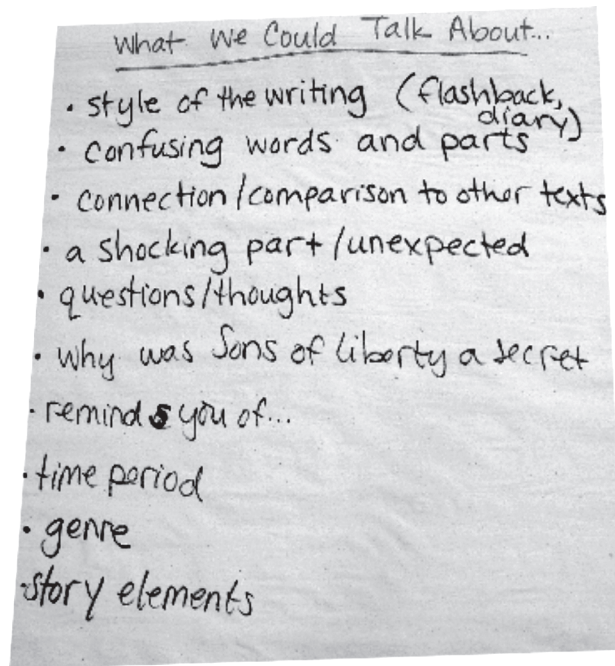 What We Could Talk About...
• style of the writing (flashback,
diary)
• confusing words and parts
• connection/comparison to other texts
• a shocking part/unexpected
• questions/thoughts
• why was Sons of Liberty a secret
• reminds you of...
• time period
• genre
• story elements